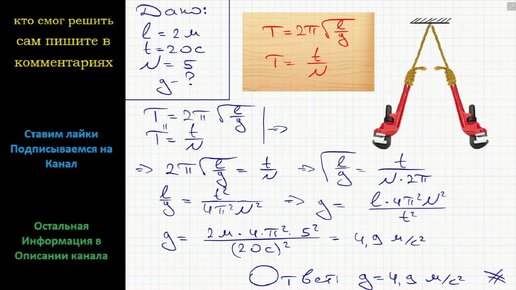 кто смог решить
сам пишите в
комментариях
Ставим лайки
Подписываемся на
Канал
Остальная
Информация в
Описании канала
Дано:
l = 2м
t = 20с
N = 5
g - ?
T = 2π√(l/g)
T = t/N
T = 2π√(l/g)
T = t/N | ⇒
⇒ 2π√(l/g) = t/N ⇒ √(l/g) = t/(N·2π)
l/g = t²/(4π²N²) ⇒ g = (l·4π²N²)/t²
g = (2м·4·π²·5²)/(20с)² = 4,9 м/с²
Ответ: g = 4,9 м/с²